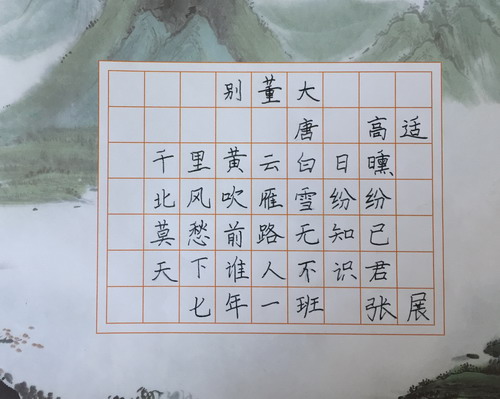 别董大
唐 高适
千里黄云白日曛
北风吹雁雪纷纷
莫愁前路无知已
天下谁人不识君
七年一班 张展